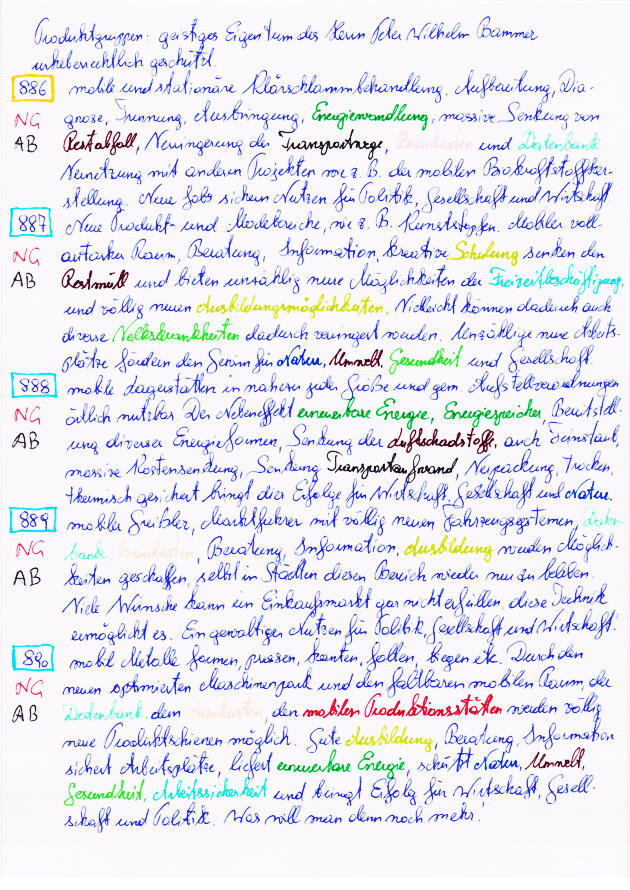 Produktgruppen: geistiges Eigentum des Herrn Peter Wilhelm Bammer
urheberrechtlich geschützt.
886 mobile und stationäre Klärschlammbehandlung. Aufbereitung, Dia-
NG gnose, Trennung, Ausbringung, Energiewandlung, massive Senkung von
AB Restabfall, Verringerung der Transportwege, Baukasten und Datenbank
Vernetzung mit anderen Projekten wie z. B. der mobilen Biokraftstoffher-
stellung. Neue Jobs sichern Nutzen für Politik, Gesellschaft und Wirtschaft
887 Neue Produkt- und Modebereiche, wie z. B. Kunststopfen. Mobiler voll-
NG autarker Raum, Beratung, Information, kreative Schulung senken den
AB Restmüll und bieten unzählig neue Möglichkeiten der Freizeitbeschäftigung,
und völlig neuen Ausbildungsmöglichkeiten. Vielleicht können dadurch auch
diverse Volkskrankheiten dadurch verringert werden. Unzählige neue Arbeits-
plätze fördern den Gewinn für Natur, Umwelt, Gesundheit und Gesellschaft.
888 mobile Lagerstätten in nahezu jeder Größe und gem. Aufstellverordnungen
NG örtlich nutzbar. Der Nebeneffekt erneuerbare Energie, Energiespeicher, Bereitstell-
AB ung diverser Energieformen, Senkung der Luftschadstoffe, auch Feinstaub,
massive Kostensenkung, Senkung Transportaufwand, Verpackung, trocken,
thermisch gesichert bringt dies Erfolge für Wirtschaft, Gesellschaft und Natur.
889 mobiler Greißler, Marktfahrer mit völlig neuen Fahrzeugsystemen, Daten-
NG bank Baukasten, Beratung, Information, Ausbildung werden Möglich-
AB keiten geschaffen, selbst in Städten diesen Bereich wieder neu zu beleben.
Viele Wünsche kann ein Einkaufsmarkt gar nicht erfüllen, diese Technik
ermöglicht es. Ein gewaltiger Nutzen für Politik, Gesellschaft und Wirtschaft!
890 mobil Metalle formen, pressen, kanten, falten, biegen etc. Durch den
NG neuen optimierten Maschinenpark und den faltbaren mobilen Raum, der
AB Datenbank, dem Baukasten, den mobilen Produktionsstätten werden völlig
neue Produktschienen möglich. Gute Ausbildung, Beratung, Information
sichert Arbeitsplätze, liefert erneuerbare Energie, schützt Natur, Umwelt,
Gesundheit, Arbeitssicherheit und bringt Erfolg für Wirtschaft, Gesell-
schaft und Politik. Was will man denn noch mehr!